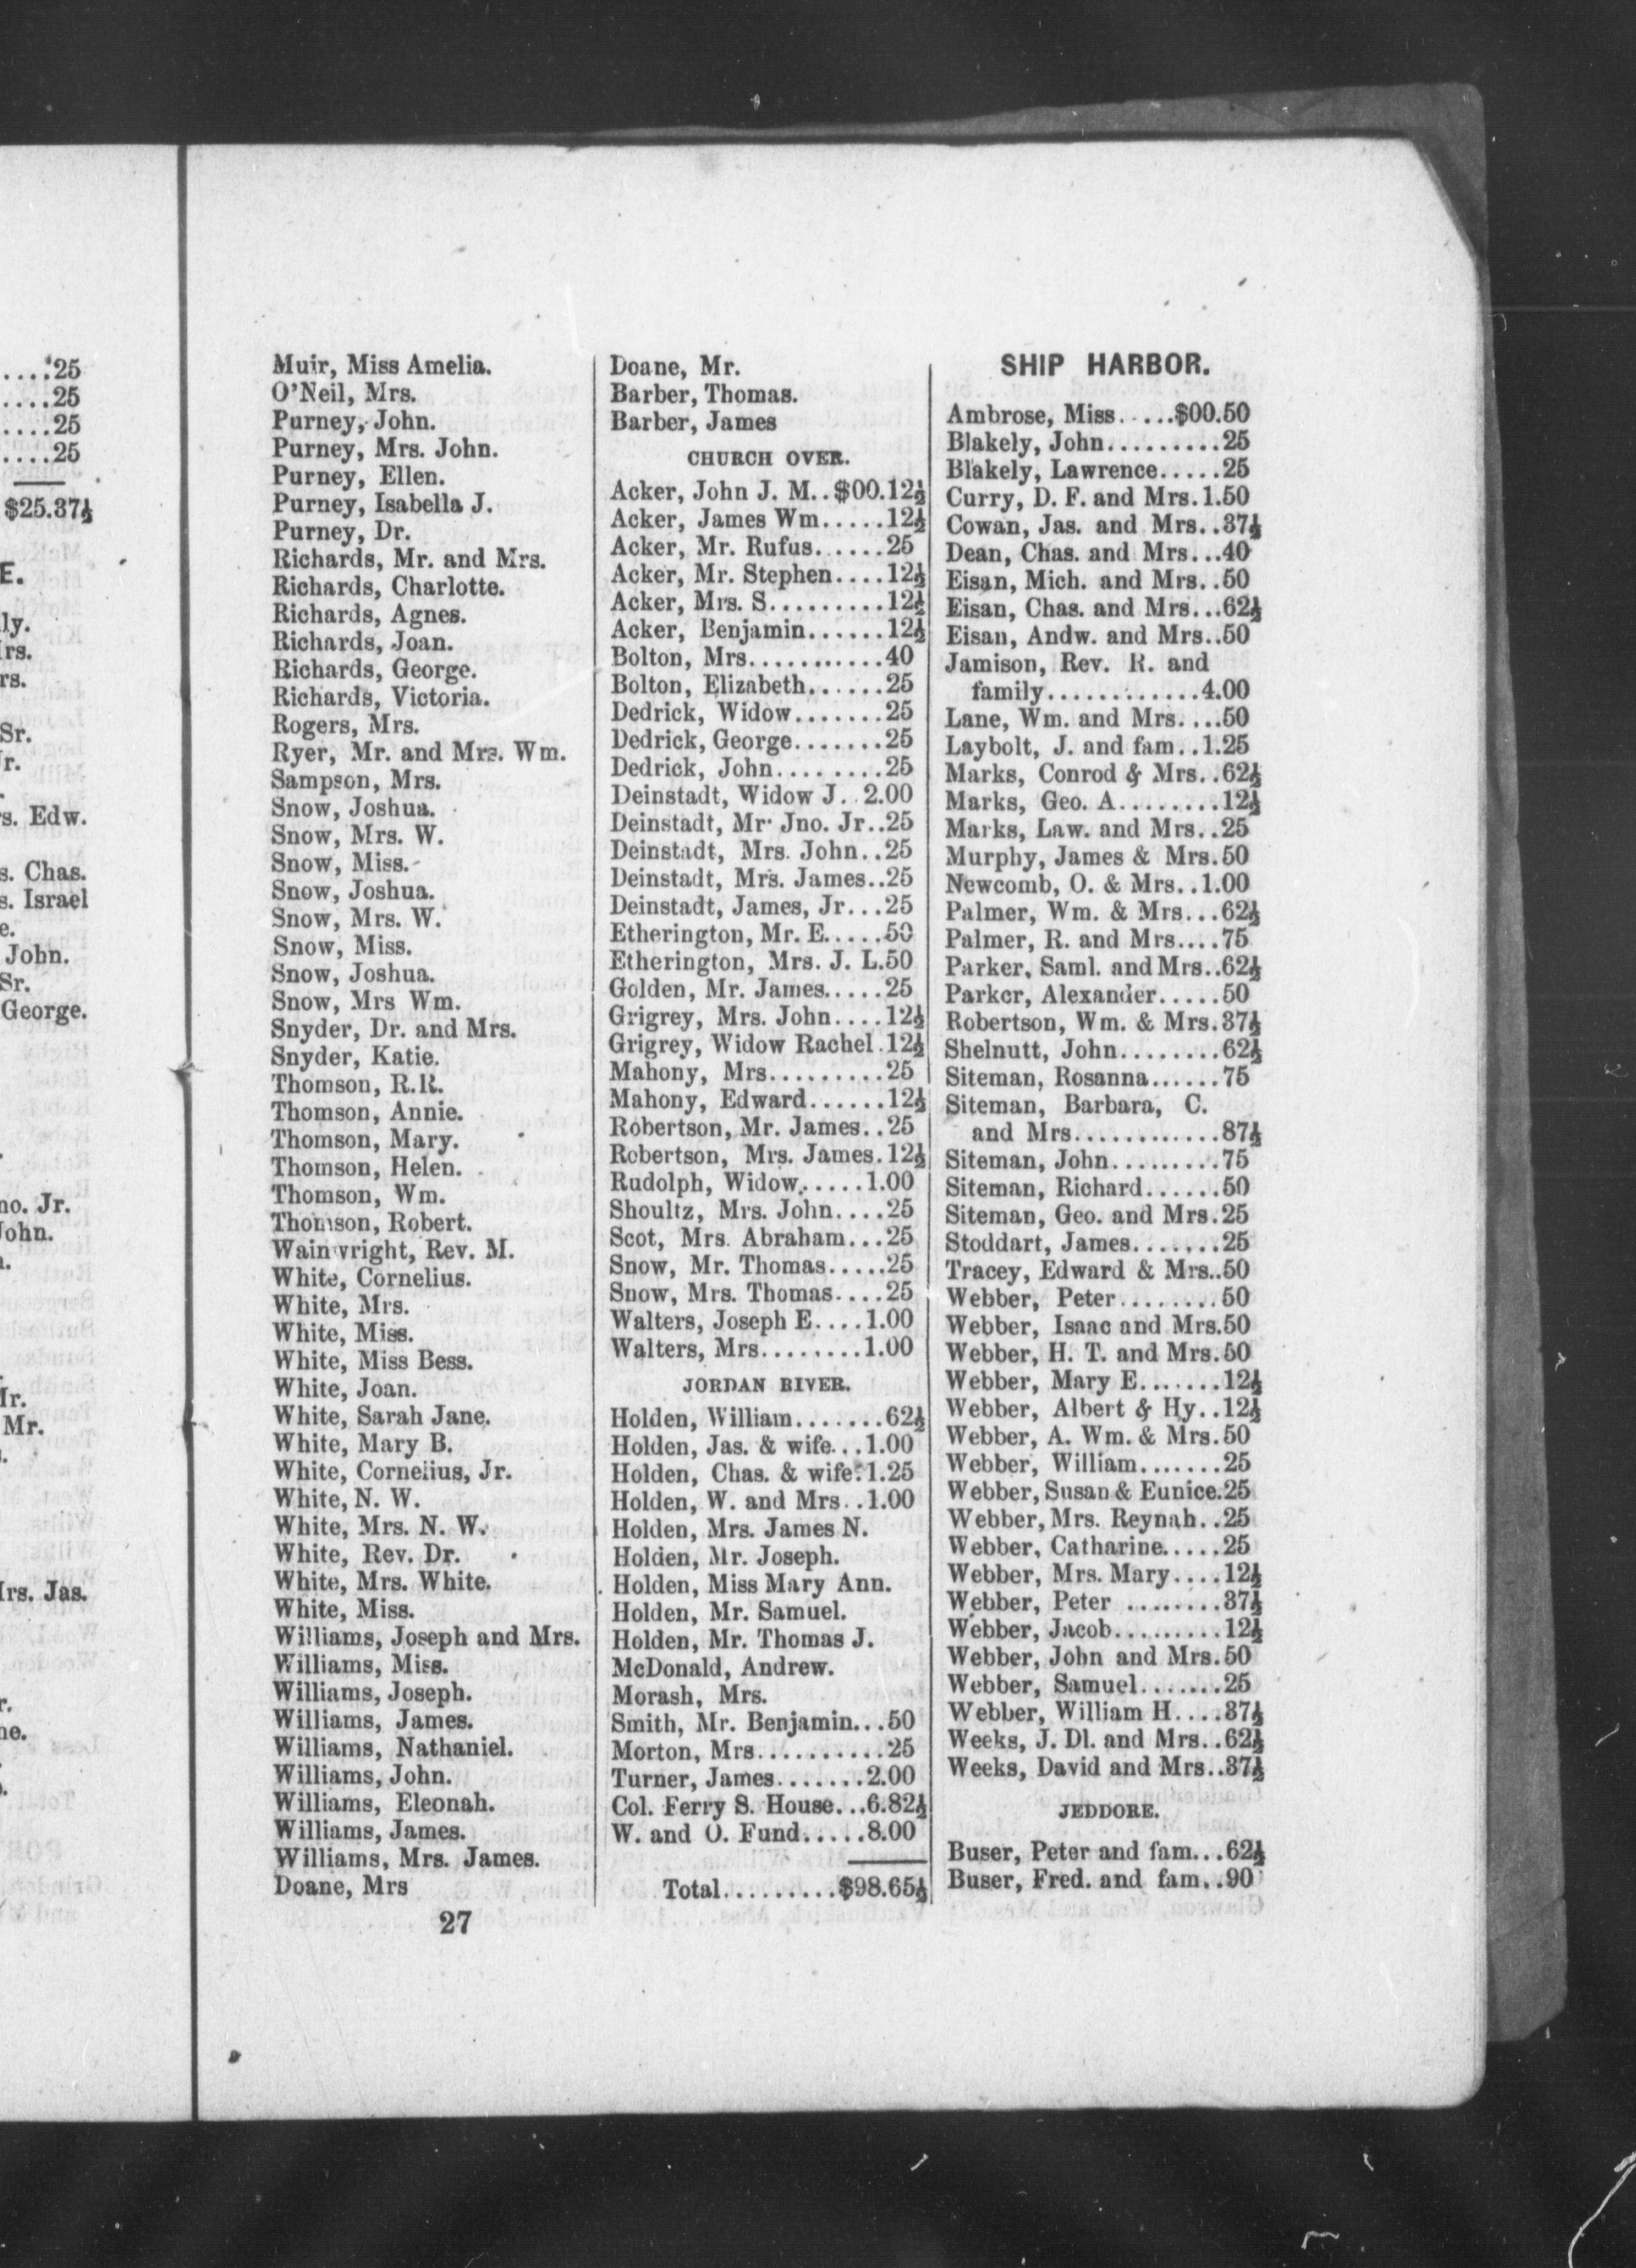 ....25
....25
....25
....25
$25.37½
E.
ly.
rs.
rs.
Sr.
r.
s. Edw.
s. Chas.
s. Israel
e.
John.
Sr.
George.
no. Jr.
John.
Mr.
Mrs. Jas.
r.
ne.
Muir, Miss Amelia.
O'Neil, Mrs.
Purney, John.
Purney, Mrs. John.
Purney, Ellen.
Purney, Isabella J.
Purney, Dr.
Richards, Mr. and Mrs.
Richards, Charlotte.
Richards, Agnes.
Richards, Joan.
Richards, George.
Richards, Victoria.
Rogers, Mrs.
Ryer, Mr. and Mrs. Wm.
Sampson, Mrs.
Snow, Joshua.
Snow, Mrs. W.
Snow, Miss.
Snow, Joshua.
Snow, Mrs. W.
Snow, Miss.
Snow, Joshua.
Snow, Mrs Wm.
Snyder, Dr. and Mrs.
Snyder, Katie.
Thomson, R.R.
Thomson, Annie.
Thomson, Mary.
Thomson, Helen.
Thomson, Wm.
Thomson, Robert.
Wainwright, Rev. M.
White, Cornelius.
White, Mrs.
White, Miss.
White, Miss Bess.
White, Joan.
White, Sarah Jane.
White, Mary B.
White, Cornelius, Jr.
White, N. W.
White, Mrs. N. W.
White, Rev. Dr.
White, Mrs. White.
White, Miss.
Williams, Joseph and Mrs.
Williams, Miss.
Williams, Joseph.
Williams, James.
Williams, Nathaniel.
Williams, John.
Williams, Eleonah.
Williams, James.
Williams, Mrs. James.
Doane, Mrs
27
Doane, Mr.
Barber, Thomas.
Barber, James
CHURCH OVER.
Acker, John J. M..$00.12½
Acker, James Wm.....12½
Acker, Mr. Rufus......25
Acker, Mr. Stephen....12½
Acker, Mrs. S.........12½
Acker, Benjamin......12½
Bolton, Mrs...........40
Bolton, Elizabeth......25
Dedrick, Widow.......25
Dedrick, George.......25
Dedrick, John........25
Deinstadt, Widow J. .2.00
Deinstadt, Mr. Jno. Jr..25
Deinstadt, Mrs. John..25
Deinstadt, Mrs. James..25
Deinstadt, James, Jr...25
Etherington, Mr. E.....50
Etherington, Mrs. J. L.50
Golden, Mr. James.....25
Grigrey, Mrs. John....12½
Grigrey, Widow Rachel.12½
Mahony, Mrs.........25
Mahony, Edward......12½
Robertson, Mr. James..25
Robertson, Mrs. James.12½
Rudolph, Widow......1.00
Shoultz, Mrs. John....25
Scot, Mrs. Abraham...25
Snow, Mr. Thomas.....25
Snow, Mrs. Thomas....25
Walters, Joseph E....1.00
Walters, Mrs........1.00
JORDAN RIVER.
Holden, William.......62½
Holden, Jas. & wife...1.00
Holden, Chas. & wife.1.25
Holden, W. and Mrs..1.00
Holden, Mrs. James N.
Holden, Mr. Joseph.
Holden, Miss Mary Ann.
Holden, Mr. Samuel.
Holden, Mr. Thomas J.
McDonald, Andrew.
Morash, Mrs.
Smith, Mr. Benjamin...50
Morton, Mrs..........25
Turner, James.......2.00
Col. Ferry S. House...6.82½
W. and O. Fund.....8.00
Total.........$98.65½
SHIP HARBOR.
Ambrose, Miss.....$00.50
Blakely, John.........25
Blakely, Lawrence.....25
Curry, D. F. and Mrs.1.50
Cowan, Jas. and Mrs..37½
Dean, Chas. and Mrs...40
Eisan, Mich. and Mrs..50
Eisan, Chas. and Mrs...62½
Eisan, Andw. and Mrs..50
Jamison, Rev. R. and
family............4.00
Lane, Wm. and Mrs....50
Laybolt, J. and fam..1.25
Marks, Conrod & Mrs..62½
Marks, Geo. A........12½
Marks, Law. and Mrs..25
Murphy, James & Mrs.50
Newcomb, O. & Mrs..1.00
Palmer, Wm. & Mrs...62½
Palmer, R. and Mrs....75
Parker, Saml. and Mrs..62½
Parker, Alexander.....50
Robertson, Wm. & Mrs.37½
Shelnutt, John........62½
Siteman, Rosanna......75
Siteman, Barbara, C.
and Mrs............87½
Siteman, John.........75
Siteman, Richard......50
Siteman, Geo. and Mrs.25
Stoddart, James.......25
Tracey, Edward & Mrs..50
Webber, Peter........50
Webber, Isaac and Mrs.50
Webber, H. T. and Mrs.50
Webber, Mary E.......12½
Webber, Albert & Hy..12½
Webber, A. Wm. & Mrs.50
Webber, William.......25
Webber, Susan & Eunice.25
Webber, Mrs. Reynah..25
Webber, Catharine.....25
Webber, Mrs. Mary....12½
Webber, Peter ........37½
Webber, Jacob.........12½
Webber, John and Mrs.50
Webber, Samuel.......25
Webber, William H....37½
Weeks, J. Dl. and Mrs..62½
Weeks, David and Mrs..37½
JEDDORE.
Buser, Peter and fam...62½
Buser, Fred. and fam..90